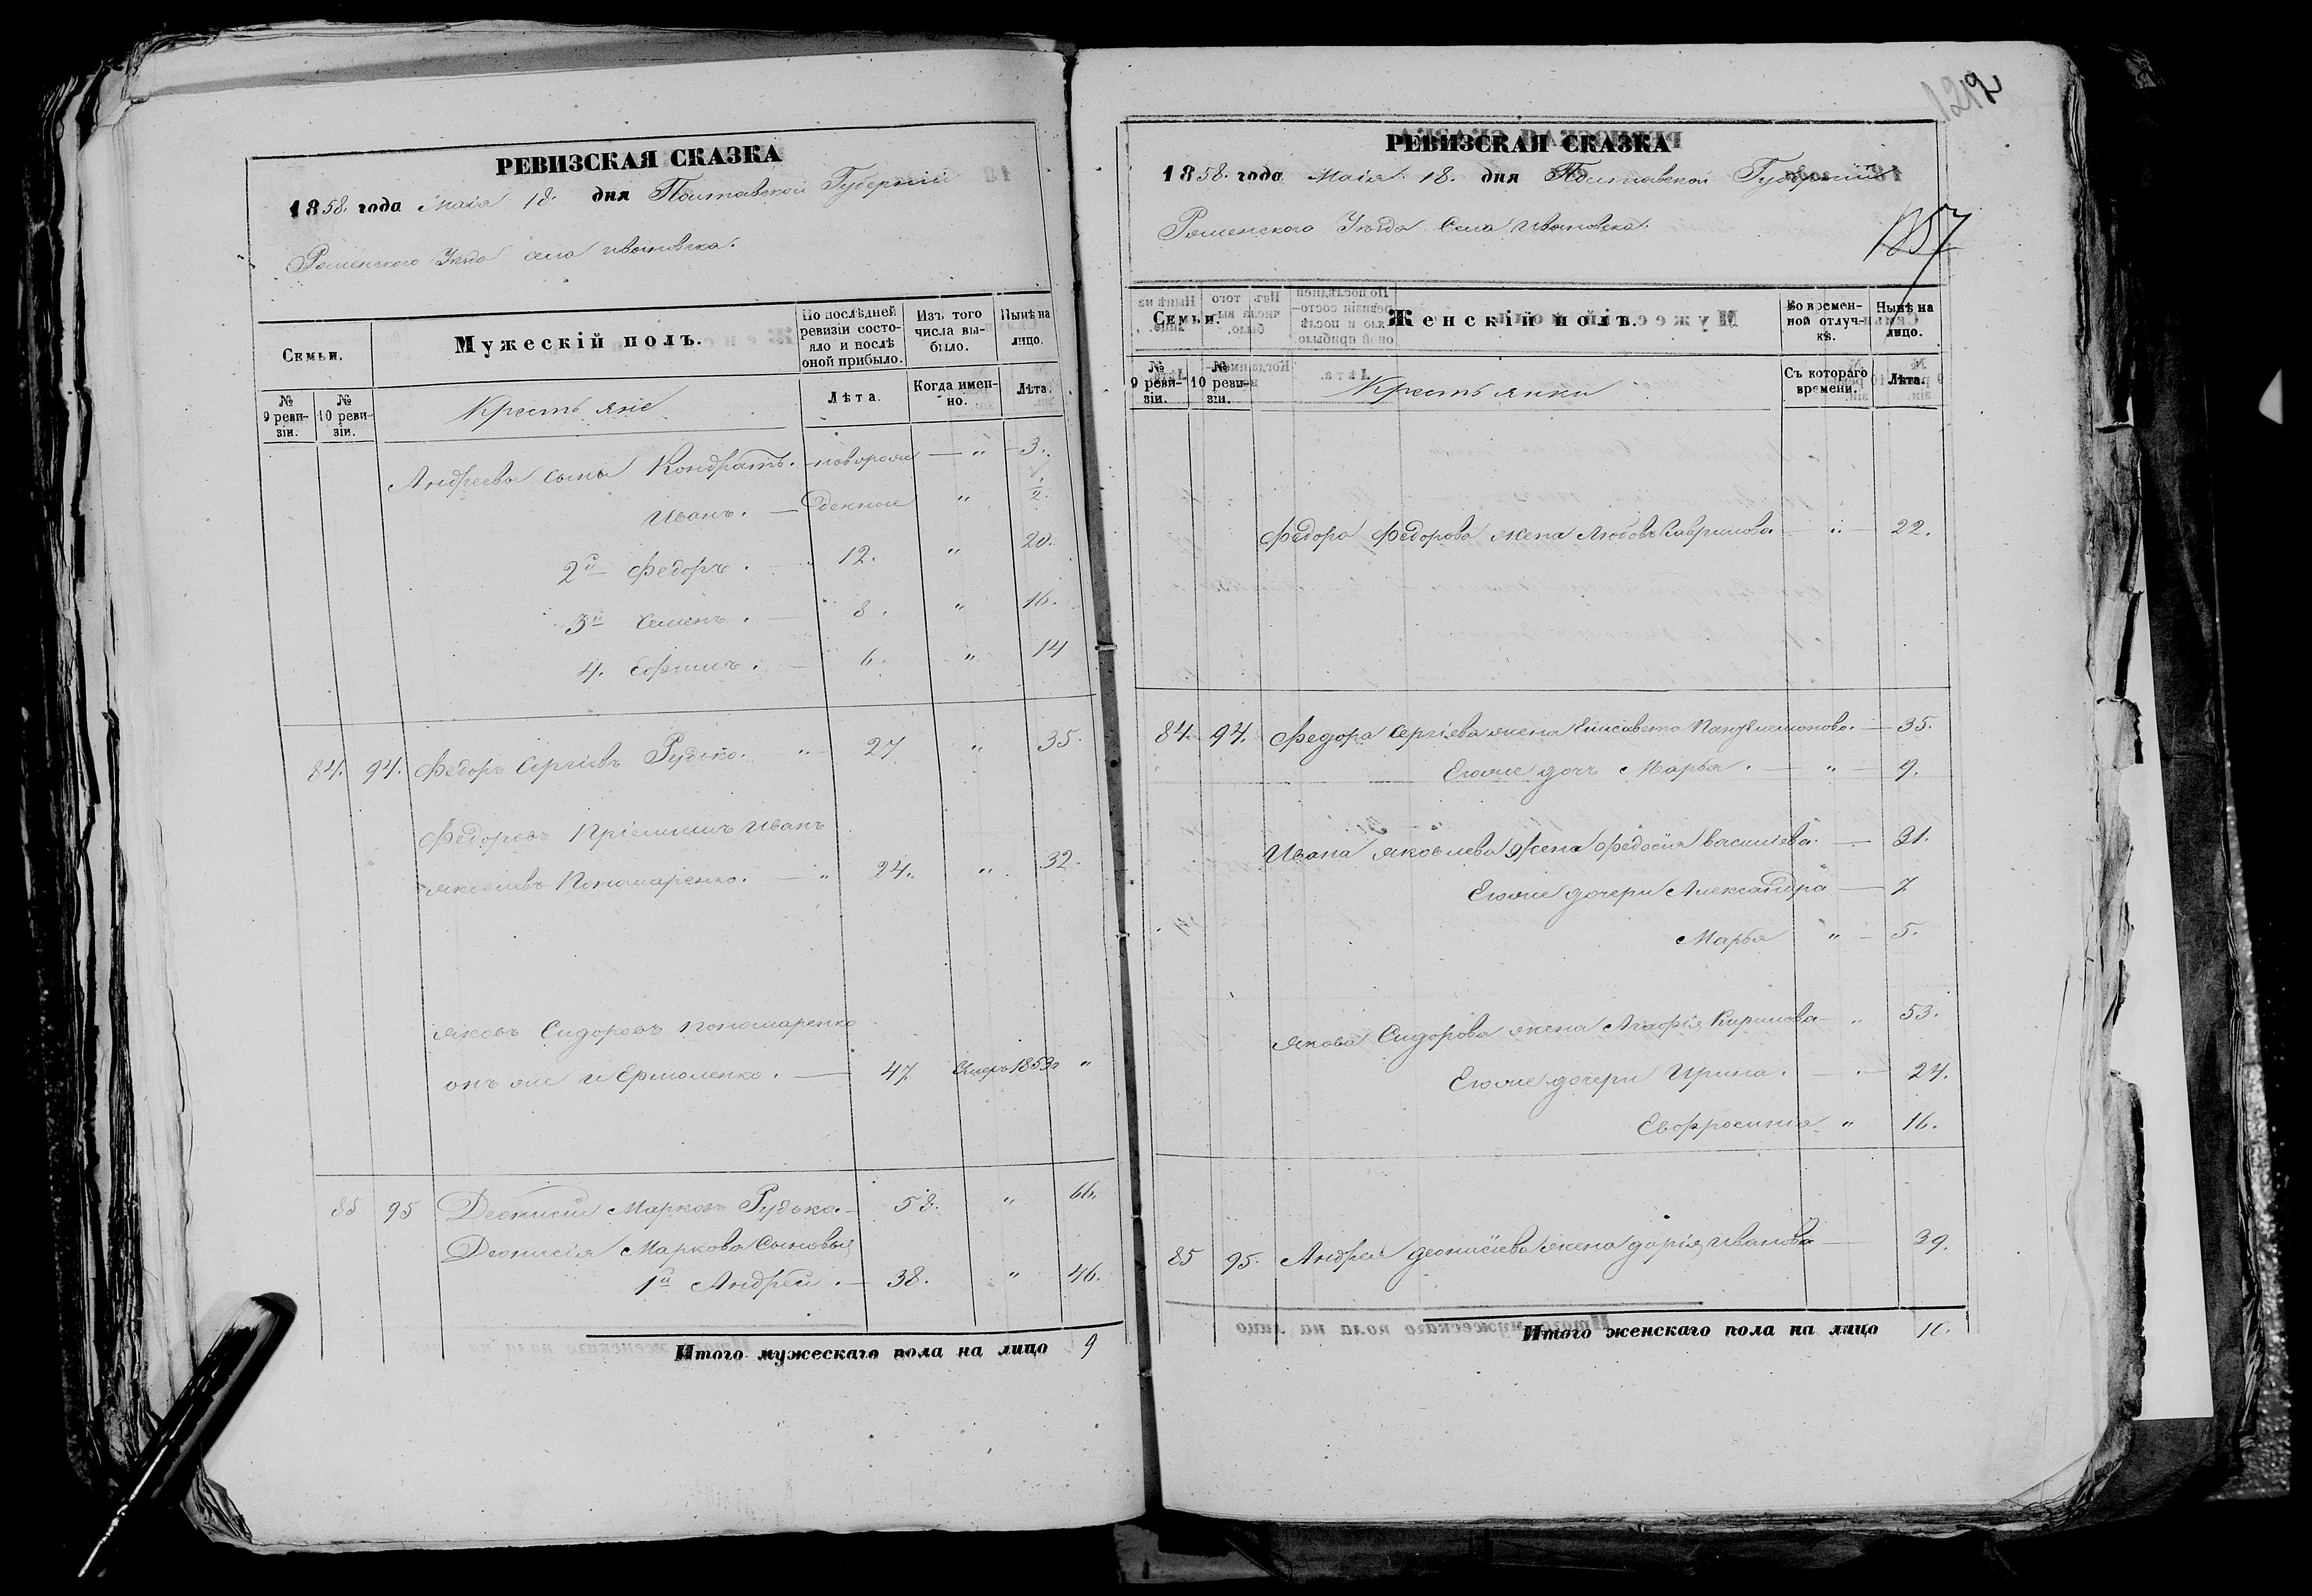 РЕВИЗСКАЯ СКАЗКА
1858. года Маія 18. дня Полтавской Губерніи
Роменского Уѣзда села Ивановска.
Семьи.
Мужескій полъ.
По послѣдней ревизіи состояло и послѣ оной прибыло.
Изъ того числа выбыло.
Нынѣ на лицо.
№ 9 ревизіи.
№ 10 ревизіи.
Крестьяне
Лѣта.
Когда именно.
Лѣта.
Андреева сыны Кондратъ. — новорож — " — 3.
Иванъ. — " ½.
2й Федоръ. — 12. " 20.
3й Семенъ. — 8. " 16.
4. Ефимъ. — 6. " 14
84. 94. Федоръ Сергіевъ Рудько. " 27 " 35.
Федоровъ Пріемышъ Иванъ
Яковлевъ Пономаренко. — " 24. " 32.
Яковъ Сидоровъ Пономаренко
онъ же и Ермоленко. — 47 Умеръ 1853 "
85 95 Деонисій Марковъ Рудька — 58. " 66.
Деонисія Маркова Сыновья
1й Андрей. — 38. " 46.
Итого мужескаго пола на лицо 9
1219
РЕВИЗСКАЯ СКАЗКА
1858. года Маія 18. дня Полтавской Губерніи
Роменского Уѣзда Села Ивановска.
1257
Семьи.
Женскій полъ.
Во временной отлучкѣ.
Нынѣ на лицо.
№ 9 ревизіи.
№ 10 ревизіи.
Крестьянки
Съ котораго времени.
Лѣта.
Федора Федорова жена Любовь Гаврилова — " — 22.
84. 94. Федора Сергіева жена Елисавета Пантелемонова. — 35.
Егоже дочь Марья. — " — 9.
Ивана Яковлева Жена Федосія Василіева. — 31.
Егоже дочери Александра — 7
Марья " — 5.
Якова Сидорова жена Агафія Кирилова — " 53.
Егоже дочери Ирина. — " — 24.
Евфросинія " 16.
85 95. Андрея Деонисіева жена Дарія Иванова — 39.
Итого женскаго пола на лицо 10.